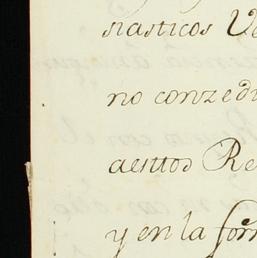 siasticos Ve
no conzedi
aentos Re
y en la form